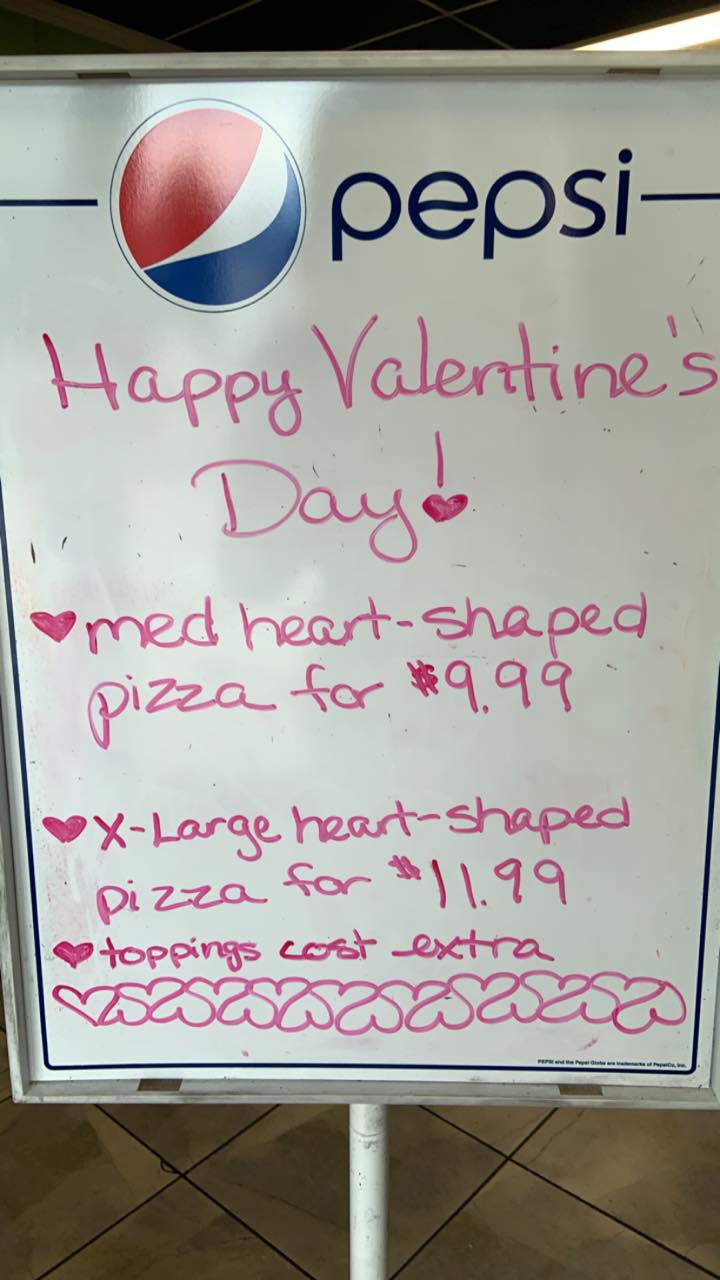 pepsi
Happy Valentine's
Day!
med heart-shaped
pizza for $9.99
X-Large heart-shaped
pizza for $11.99
toppings cost extra
PEPSI and the Pepsi Globe are trademarks of PepsiCo, Inc.